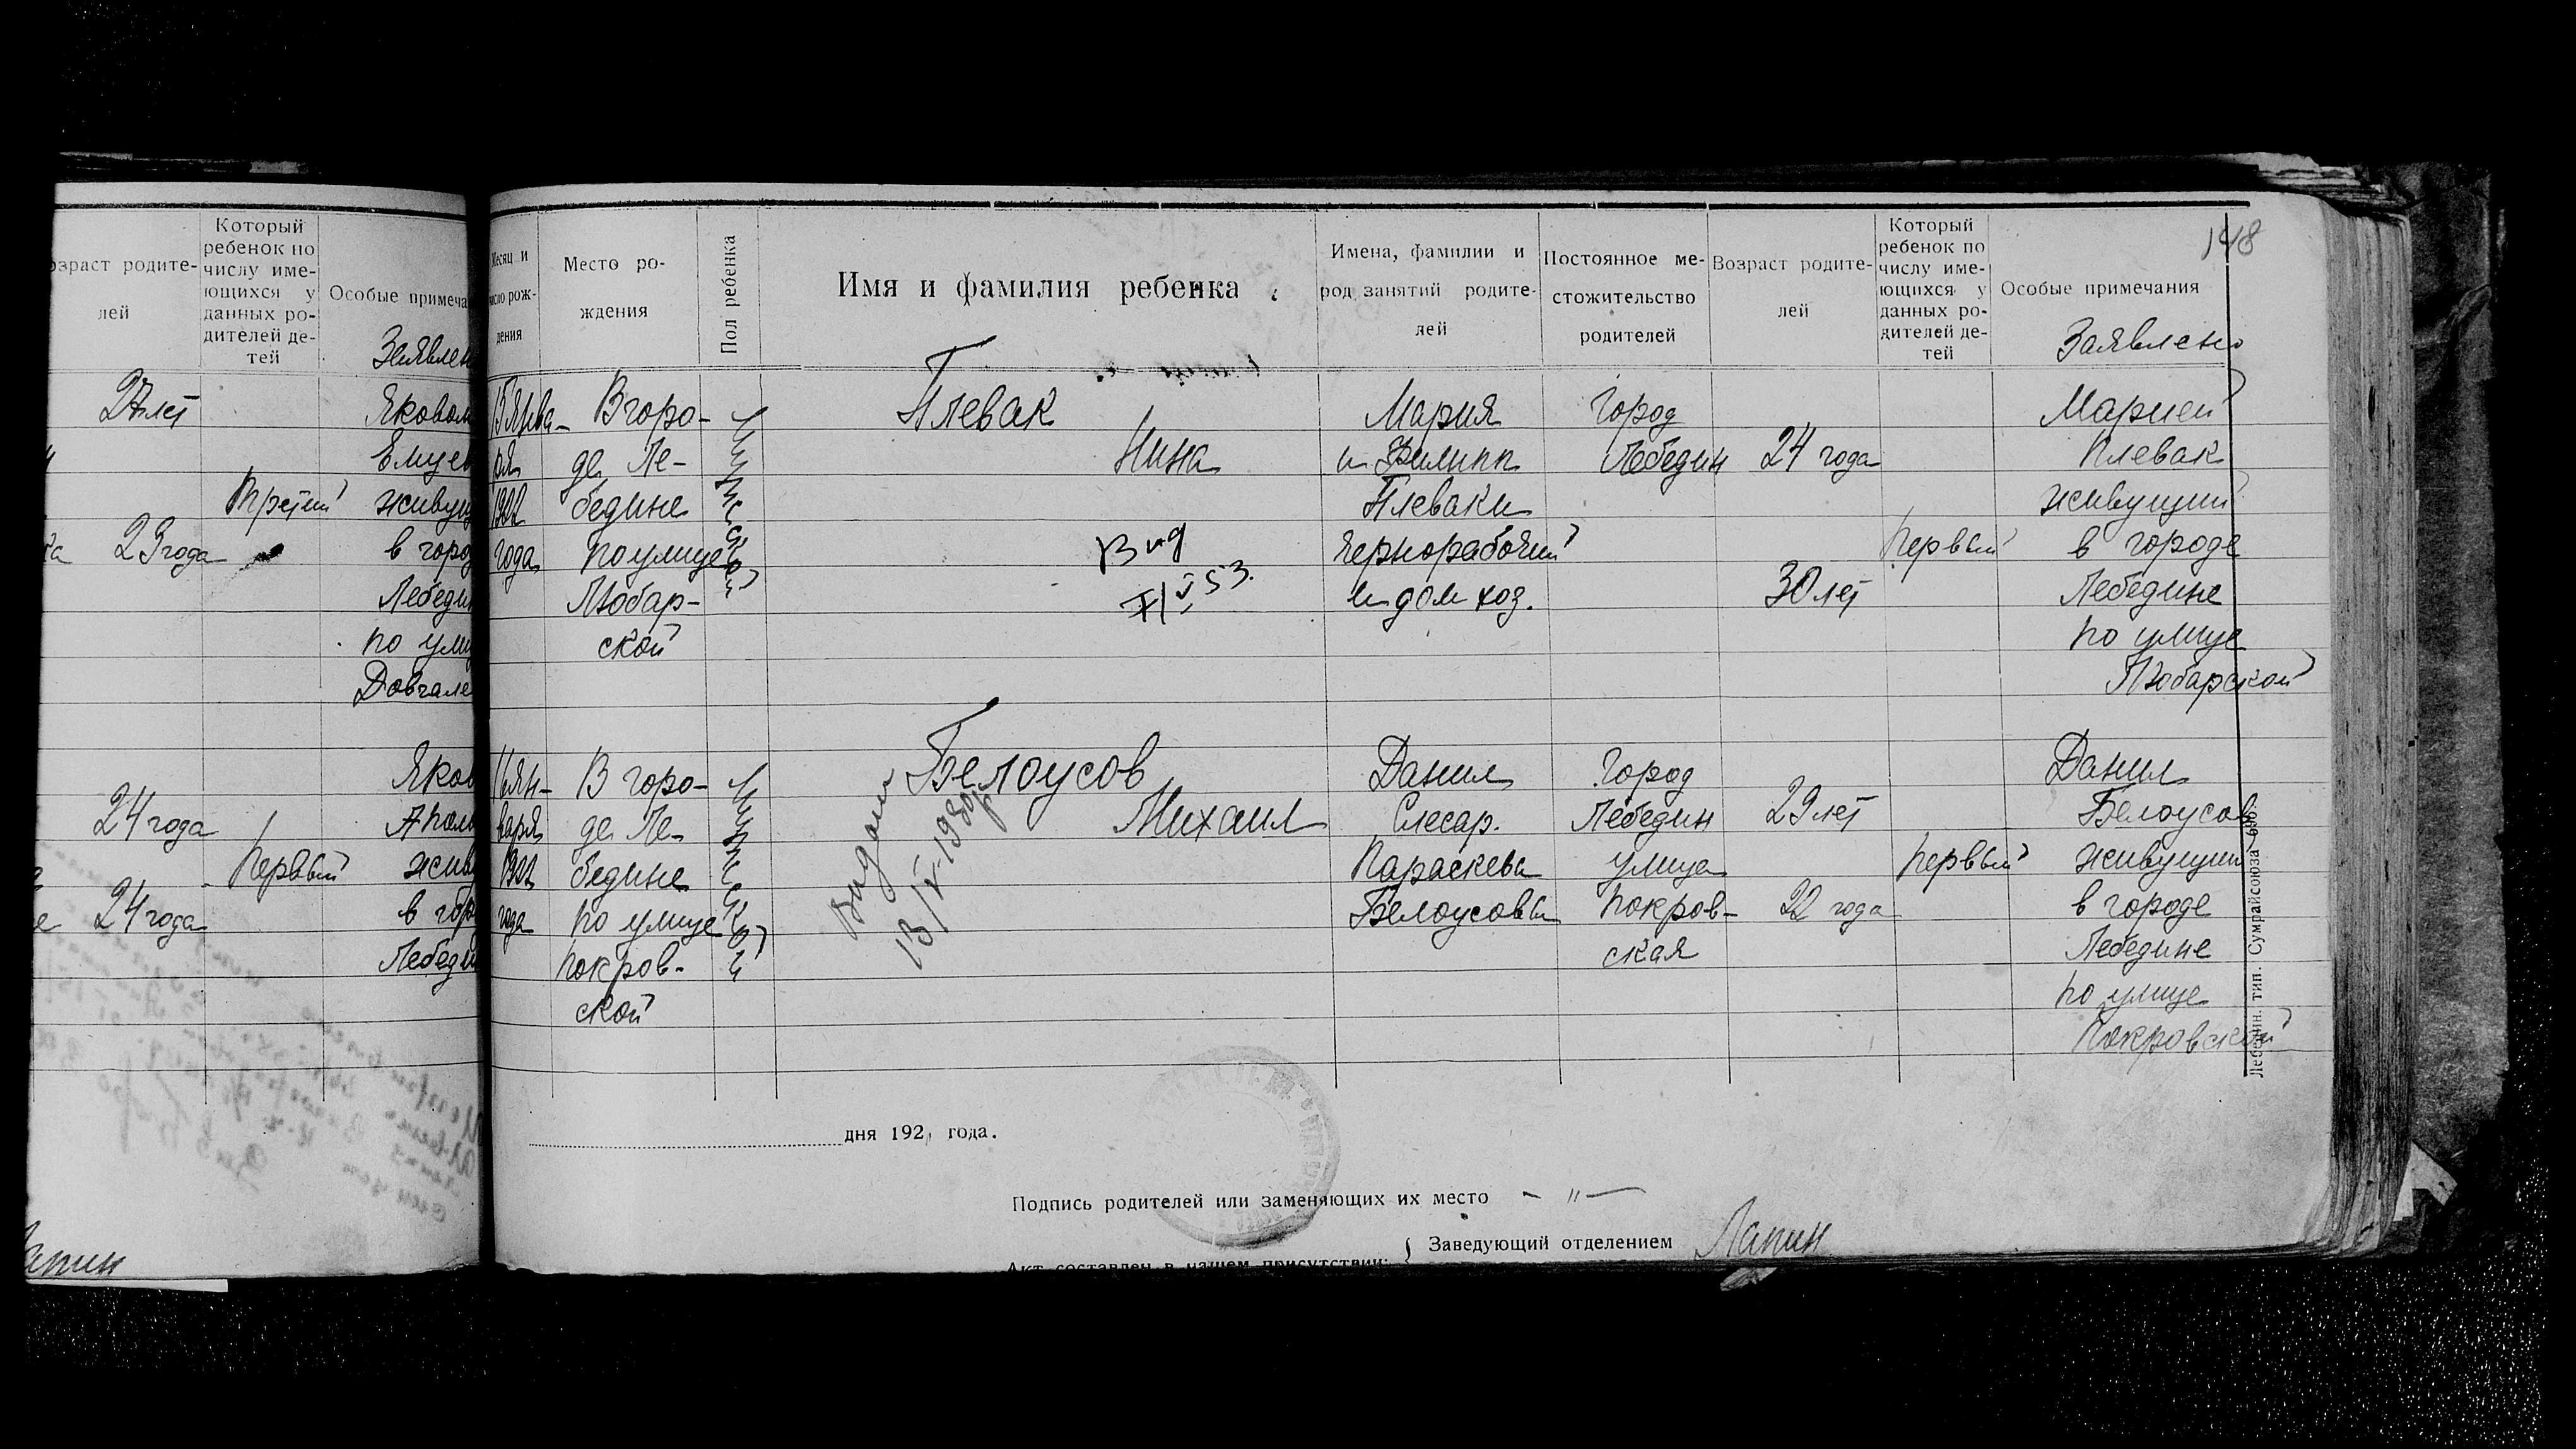 озраст родите-
лей
Который
ребенок по
числу име-
ющихся у
данных ро-
дителей де-
тей
Особые примеча
Заявлен
27 лет
Яковом
Емцев
Третий
живущ
23 года
в город
Лебедин
по ули
Довгале
Яков
24 года
Первый
живу
в гор
24 года
Лебеди
апин
148
Месяц и
число рож-
дения
Место ро-
ждения
Пол ребенка
Имя и фамилия ребенка
Имена, фамилии и
род занятий родите-
лей
Постоянное ме-
стожительство
родителей
Возраст родите-
лей
Который
ребенок по
числу име-
ющихся у
данных ро-
дителей де-
тей
Особые примечания
Заявлено
15 янва-
ря
1922
года
В горо-
де Ле-
бедине
по улице
Любар-
ской
Женской
Плевак
Нина
Вид
XI/V 53.
Мария
и Филипп
Плеваки
чернорабочий
и дом хоз.
Город
Лебедин
24 года
30 лет
Первый
Марией
Плевак
живущий
в городе
Лебедине
по улице
Любарской
16 ян-
варя
1922
года
В горо-
де Ле-
бедине
по улице
Покров-
ской
Белоусов
Михаил
Видан
Данил
Слесар.
Параскева
Белоусовы
Город
Лебедин
улица
Покров-
ская
29 лет
22 года
Первый
Данил
Белоусов
живущий
в городе
Лебедине
по улице
Покровской
Лебедин. тип. Сумрайсоюза
дня 192 года.
Подпись родителей или заменяющих их место — " —
Заведующий отделением Лапин
Акт составлен в нашем присутствии: